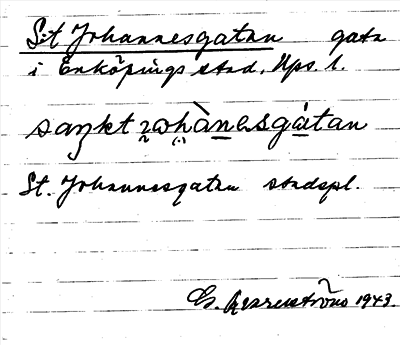 S:t Johannesgatan gata
i Enköpings stad, Upps. l.
saŋkt johànesgátan
St. Johannesgatan stadspl.
1943.